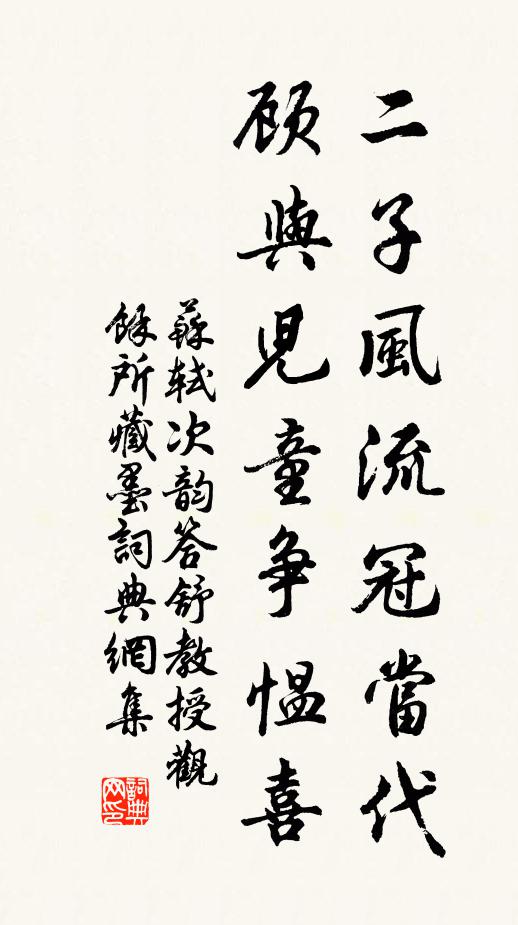 二子風流冠當代
顧與児童爭愠喜
蘇軾次韵答舒教授觀
餘所藏墨詞典網集
詞典
网印